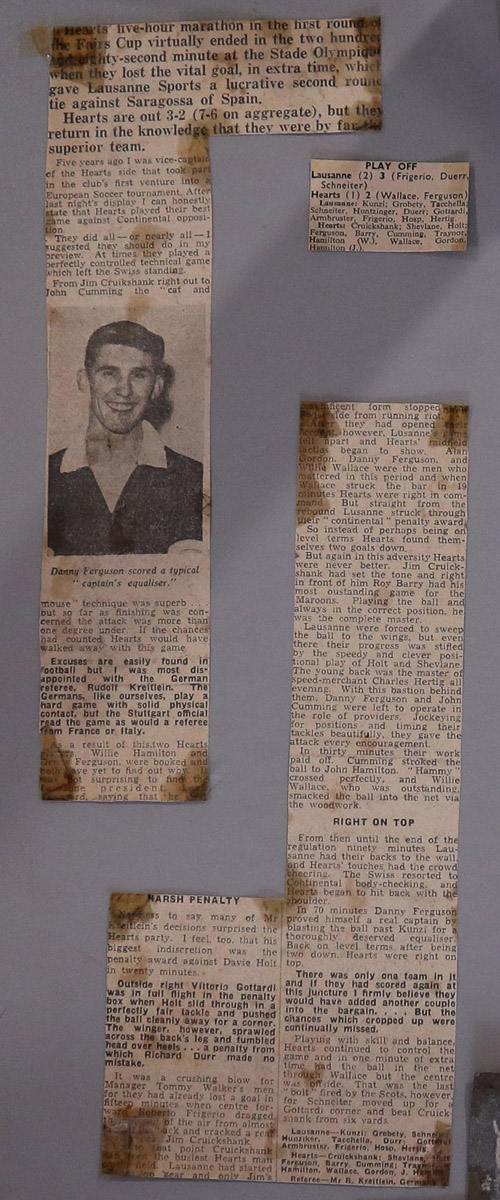 Hearts' five-hour marathon in the first round of
the Fairs Cup virtually ended in the two hundred
and eighty-second minute at the Stade Olympique
when they lost the vital goal, in extra time, which
gave Lausanne Sports a lucrative second round
tie against Saragossa of Spain.
Hearts are out 3-2 (7-6 on aggregate), but they
return in the knowledge that they were by far the
superior team.
Five years ago I was vice-captain
of the Hearts side that took part
in the club's first venture into a
European Soccer tournament. After
last night's display I can honestly
state that Hearts played their best
game against Continental opposi-
tion.
They did all—or nearly all—I
suggested they should do in my
preview. At times they played a
perfectly controlled technical game
which left the Swiss standing.
From Jim Cruikshank right out to
John Cumming the "cat and
Danny Ferguson scored a typical
"captain's equaliser."
mouse" technique was superb . . .
but so far as finishing was con-
cerned the attack was more than
one degree under. If the chances
had counted Hearts would have
walked away with this game.
Excuses are easily found in
football but I was most dis-
appointed with the German
referee, Rudolf Kreitlein. The
Germans, like ourselves, play a
hard game with solid physical
contact, but the Stuttgart official
read the game as would a referee
from France or Italy.
a result of this, two Hearts
Willie Hamilton and
Ferguson, were booked and
have yet to find out why.
not surprising to find
the president
saying that he
PLAY OFF
Lausanne (2) 3 (Frigerio, Duerr,
Schneiter)
Hearts (1) 2 (Wallace, Ferguson)
Lausanne: Kunzi; Grobety, Tacchella,
Schneiter, Huntzinger, Duerr; Gottardi,
Armbruster, Frigerio, Hosp, Hertig.
Hearts: Cruickshank; Shevlane, Holt;
Ferguson, Barry, Cumming, Traynor,
Hamilton (W.), Wallace, Gordon,
Hamilton (J.).
HARSH PENALTY
to say, many of Mr
Kreitlein's decisions surprised the
Hearts party. I feel, too, that his
biggest indiscretion was the
penalty award against Davie Holt
in twenty minutes.
Outside right Vittorio Gottardi
was in full flight in the penalty
box when Holt slid through in a
perfectly fair tackle and pushed
the ball cleanly away for a corner.
The winger, however, sprawled
across the back's leg and tumbled
head over heels . . . a penalty from
which Richard Durr made no
mistake.
It was a crushing blow for
Manager Tommy Walker's men
for they had already lost a goal in
fifteen minutes when centre for-
ward Roberto Frigerio dragged
of the air from almost
and cracked a
Jim Cruickshank.
that point Cruickshank
the busiest Hearts man
field. Lausanne had started
gear and only Jim's
magnificent form stopped
side from running riot.
After they had opened their
account, however, Lusanne's game
fell apart and Hearts' midfield
tactics began to show. Alan
Gordon, Danny Ferguson, and
Willie Wallace were the men who
mattered in this period and when
Wallace struck the bar in 19
minutes Hearts were right in com-
mand. But straight from the
rebound Lusanne struck through
their "continental" penalty award.
So instead of perhaps being on
level terms Hearts found them-
selves two goals down.
But again in this adversity Hearts
were never better. Jim Cruick-
shank had set the tone and right
in front of him Roy Barry had his
most oustanding game for the
Maroons. Playing the ball and
always in the correct position, he
was the complete master.
Lausanne were forced to sweep
the ball to the wings, but even
there their progress was stifled
by the speedy and clever posi-
tional play of Holt and Shevlane.
The young back was the master of
speed-merchant Charles Hertig all
evening. With this bastion behind
them, Danny Ferguson and John
Cumming were left to operate in
the role of providers. Jockeying
for positions and timing their
tackles beautifully, they gave the
attack every encouragement.
In thirty minutes their work
paid off. Cumming stroked the
ball to John Hamilton. "Hammy"
crossed perfectly, and Willie
Wallace, who was outstanding,
smacked the ball into the net via
the woodwork.
RIGHT ON TOP
From then until the end of the
regulation ninety minutes Lau-
sanne had their backs to the wall,
and Hearts' touches had the crowd
cheering. The Swiss resorted to
Continental body-checking, and
Hearts began to hit back with the
shoulder.
In 70 minutes Danny Ferguson
proved himself a real captain by
blasting the ball past Kunzi for a
thoroughly deserved equaliser.
Back on level terms after being
two down. Hearts were right on
top.
There was only one team in it
and if they had scored again at
this juncture I firmly believe they
would have added another couple
into the bargain. . . . But the
chances which cropped up were
continually missed.
Playing with skill and balance,
Hearts continued to control the
game and in one minute of extra
time had the ball in the net
through Wallace but the centre
was offside. That was the last
"bolt" fired by the Scots, however,
for Schneiter moved up for a
Gottardi corner and beat Cruick-
shank from six yards.
Lausanne—Kunzi; Grobety, Schneiter,
Hunziker, Tacchella, Durr; Gottardi,
Armbruster, Frigerio, Hosp, Hertig.
Hearts—Cruickshank; Shevlane,
Ferguson, Barry, Cumming;
Hamilton, Wallace, Gordon, J.
Referee—Mr R. Kreitlein, Germany.